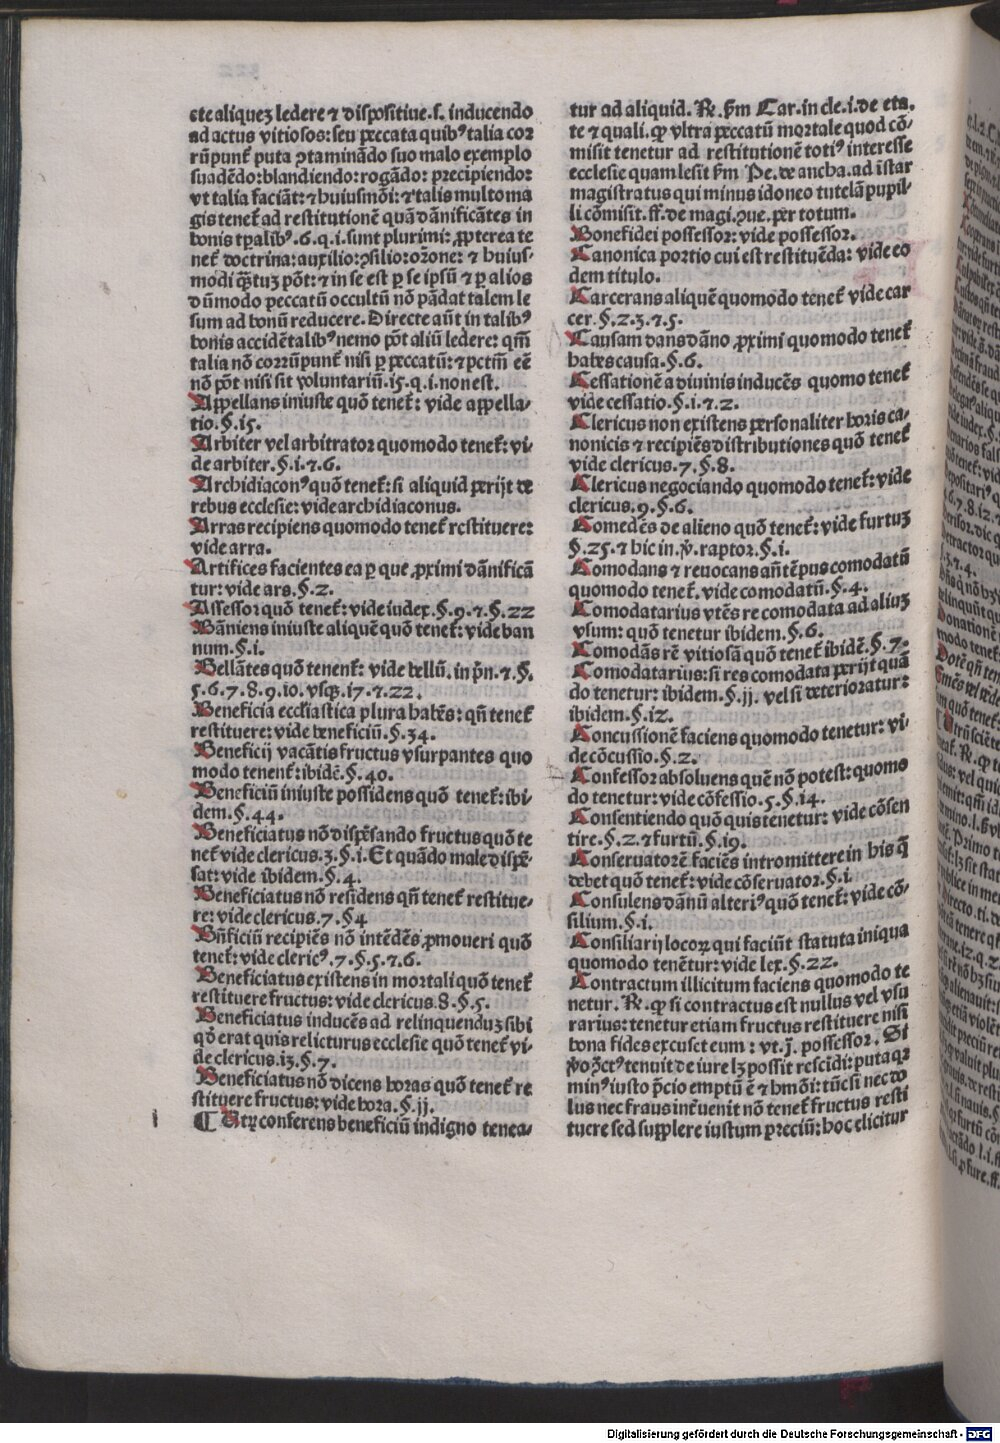 cte aliquez ledere ⁊ dispositiue.s. inducendo
ad actus vitiosos: seu peccata quibꝰ talia cor
rūpunt᷑ puta ꝯtaminādo suo malo exemplo
suadēdo: blandiendo: rogādo: precipiendo:
vt talia faciāt: ⁊ huiusmōi: ⁊ talis multo ma
gis tenet᷑ ad restitutionē quā dānificātes in
bonis tꝑalibꝰ. 6. q. i. sunt plurimi: ꝓpterea te
net᷑ doctrina: auxilio: ꝯsilio: orōne: ⁊ huius-
modi quātuz pōt: ⁊ in se est per se ipsū ⁊ ꝑ alios
dūmodo peccatū occultū nō pādat talem le
sum ad bonū reducere. Directe aūt in talibꝰ
bonis accidētalibꝰ nemo pōt aliū ledere: qm̄
talia nō corrūpunt᷑ nisi ꝑ peccatū: ⁊ pctm̄ eē
nō pōt nisi sit voluntariū. i5. q. i. non est.
Appellans iniuste quō tenet᷑: vide appella-
tio. §. i5.
Arbiter vel arbitrator quomodo tenet᷑: vi-
de arbiter. §. i. ⁊. 6.
Archidiaconꝰ quō tenet᷑: si aliquid perijt de
rebus ecclesie: vide archidiaconus.
Arras recipiens quomodo tenet᷑ restituere:
vide arra.
Artifices facientes ea ꝑ que ꝓximi dānificā
tur: vide ars. §. 2.
Assessor quō tenet᷑: vide iudex. §. 9. ⁊. §. 22
Bāniens iniuste aliquē quō tenet᷑: vide ban
num. §. i.
Bellātes quō tenent᷑: vide bellū. in pn̄. ⁊. §.
5. 6. 7. 8. 9. io. vsqꝫ. i7. ⁊. 22.
Beneficia ecclīastica plura habēs: qn̄ tenet᷑
restituere: vide beneficiū. §. 34.
Beneficij vacātis fructus vsurpantes quo
modo tenent᷑: ibidē. §. 40.
Beneficiū iniuste possidens quō tenet᷑: ibi
dem. §. 44.
Beneficiatus nō dispēsando fructus quō te
net᷑ vide clericus. 3. §. i. Et quādo male dispē-
sat: vide ibidem. §. 4.
Beneficiatus nō residens qn̄ tenet᷑ restitue-
re: vide clericus. 7. §. 4
Bn̄ficiū recipiēs nō intēdēs ꝓmoueri quō
tenet᷑: vide clericꝰ. 7. §. 5. ⁊. 6.
Beneficiatus existens in mortali quō tenet᷑
restituere fructus: vide clericus. 8. §. 5.
Beneficiatus inducēs ad relinquenduz sibi
qd̄ erat quis relicturus ecclesie quō tenet᷑ vi-
de clericus. i3. §. 7.
Beneficiatus nō dicens horas quō tenet᷑ re
stituere fructus: vide hora. §. ij.
i ¶ Utꝝ conferens beneficiū indigno tenea-
tur ad aliquid. R̄. ẜm Car. in cle. i. de eta.
te ⁊ quali. ꝙ vltra peccatū mortale quod cō-
misit tenetur ad restitutionē totiꝰ interesse
ecclesie quam lesit ẜm Pe. de ancha. ad īstar
magistratus qui minus idoneo tutelā pupil-
li cōmisit. ff. de magi. ꝯue. per totum.
Bonefidei possessor: vide possessor.
Canonica portio cui est restituēda: vide eo
dem titulo.
Carcerans aliquē quomodo tenet᷑ vide car
cer. §. 2. 3. ⁊. 5.
Causam dans dāno ꝓximi quomodo tenet᷑
habes causa. §. 6.
Cessationē a diuinis inducēs quomo tenet᷑
vide cessatio. §. i. ⁊. 2.
Clericus non existens personaliter horis ca-
nonicis ⁊ recipiēs distributiones quō tenet᷑
vide clericus. 7. §. 8.
Clericus negociando quomodo tenet᷑: vide
clericus. 9. §. 6.
Comedēs de alieno quō tenet᷑: vide furtuz
§. 25. ⁊ hic in. ꝟ. raptor. §. i.
Comodans ⁊ reuocans an̄ tēpus comodatū
quomodo tenet᷑. vide comodatū. §. 4.
Comodatarius vtēs re comodata ad aliuz
vsum: quō tenetur ibidem. §. 6.
Comodās rē vitiosā quō tenet᷑ ibidē. §. 7.
Comodatarius: si res comodata perijt quā
do tenetur: ibidem. §. ij. vel si deterioratur:
ibidem. §. i2.
Concussionē faciens quomodo tenetur: vi-
de cōcussio. §. 2.
Confessor absoluens quē nō potest: quomo
do tenetur: vide cōfessio. 5. §. i4.
Consentiendo quō quis tenetur: vide cōsen
tire. §. 2. ⁊ furtū. §. i9.
Conseruatorē faciēs intromittere in his q̄
debet quō tenet᷑: vide cōseruator. §. i.
Consulens dānū alteriꝰ quō tenet᷑: vide cō-
silium. §. i.
Consiliarij locoꝝ qui faciūt statuta iniqua
quomodo tenētur: vide lex. §. 22.
Contractum illicitum faciens quomodo te
netur. R̄. ꝙ si contractus est nullus vel vsu
rarius: tenetur etiam fructus restituere nisi
bona fides excuset eum: vt. j̄. possessor. Si
ꝟo ꝯ̄ctꝰ tenuit de iure lꝫ possit rescīdi: puta qꝛ
minꝰ iusto p̄cio emptū ē ⁊ hmōi: tūc si nec do
lus nec fraus int᷑uenit nō tenet᷑ fructus resti
tuere sed supplere iustum preciū: hoc elicitur
Digitalisierung gefördert durch die Deutsche Forschungsgemeinschaft - DFG